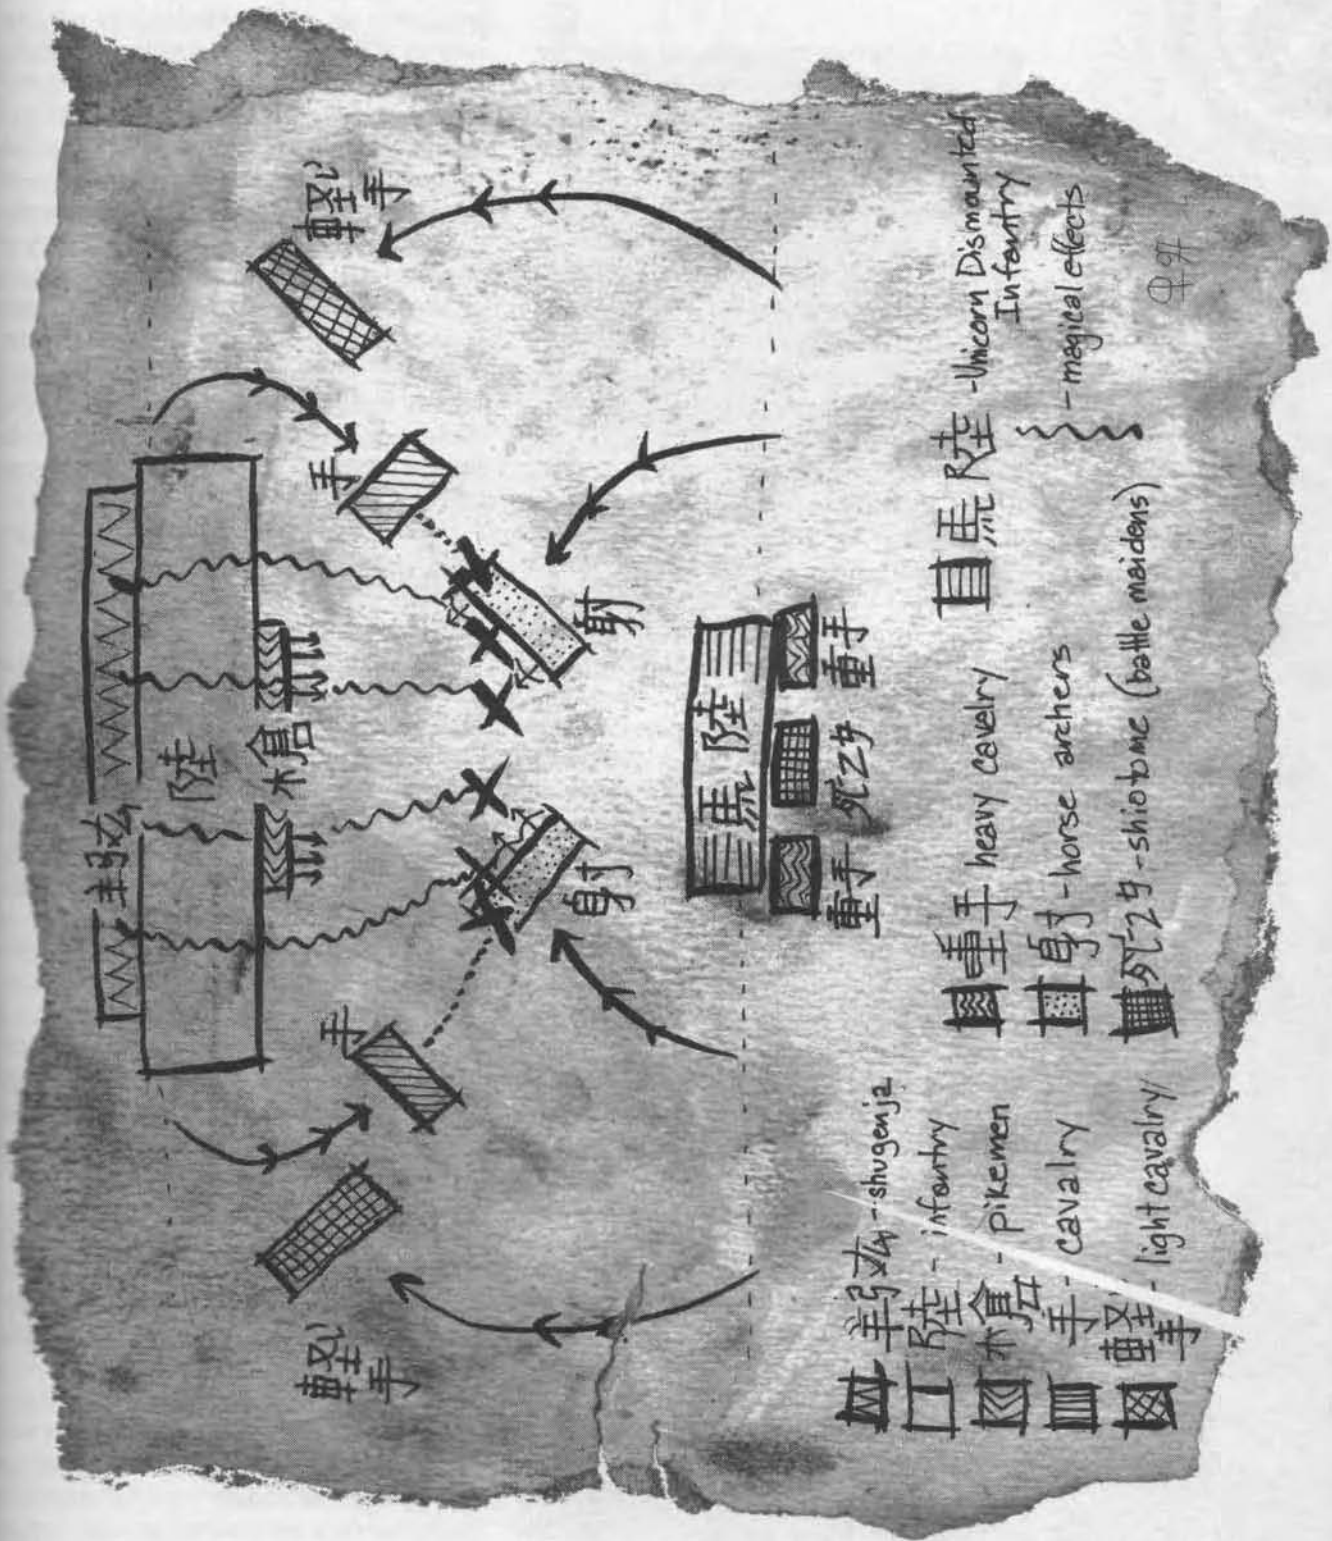 陸
槍
軽手
手
手
軽手
射
射
馬陸
重手
重手
- shugenja
陸 - infantry
槍 - pikemen
手 - cavalry
軽手 - light cavalry
重手 heavy cavelry
射 - horse archers
- shiotome (battle maidens)
馬陸 - Unicorn Dismounted
Infantry
- magical effects